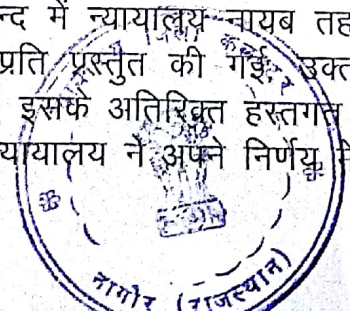 न्द में न्यायालय नायब तह
प्रति प्रस्तुत की गई, उक्त
इसके अतिरिक्त हस्तगत
यायालय ने अपने निर्णय
नागौर (राजस्थान)